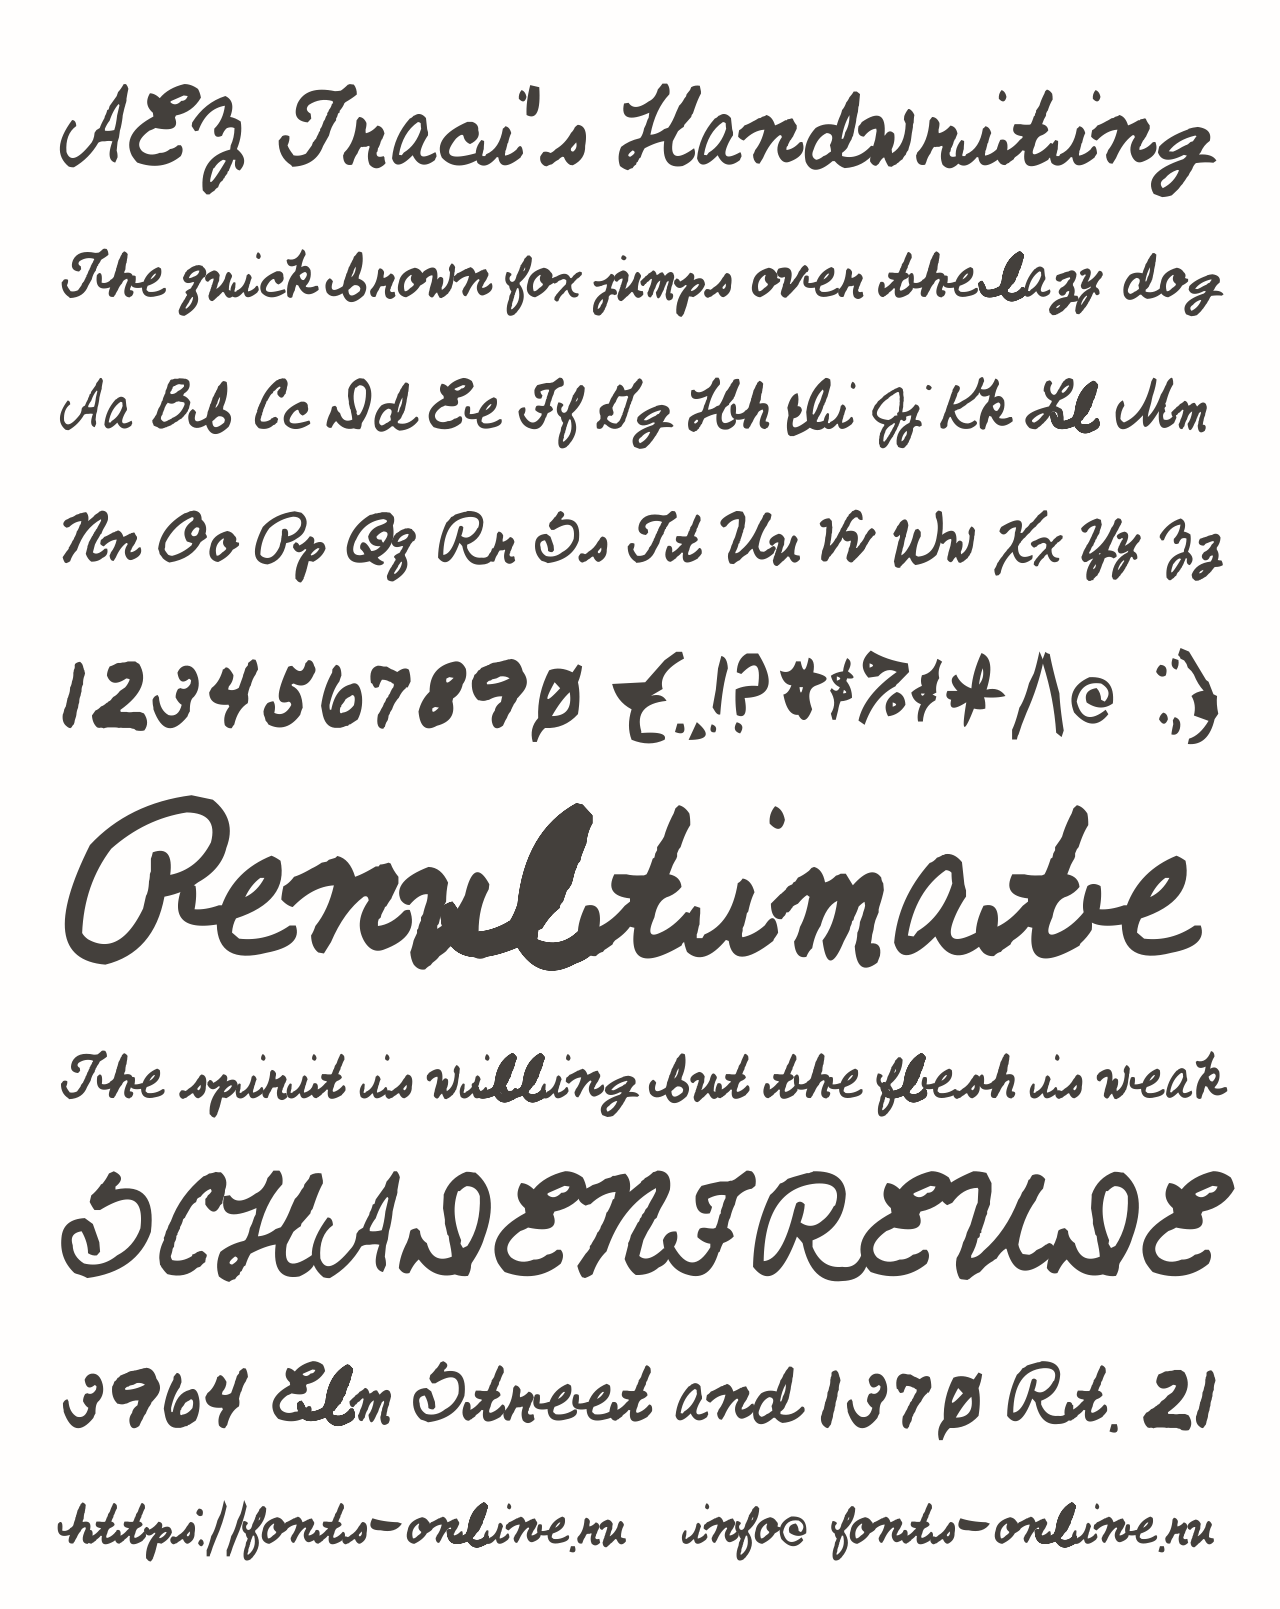 AEZ Traci's Handwriting
The quick brown fox jumps over the lazy dog
Aa Bb Cc Dd Ee Ff Gg Hh Ii Jj Kk Ll Mm
Nn Oo Pp Qq Rr Ss Tt Uu Vv Ww Xx Yy Zz
1234567890 {.,!?#$%&*/\@ :;)
Penultimate
The spirit is willing but the flesh is weak
SCHADENFREUDE
3964 Elm Street and 1370 Rt. 21
https://fonts-online.ru info@fonts-online.ru